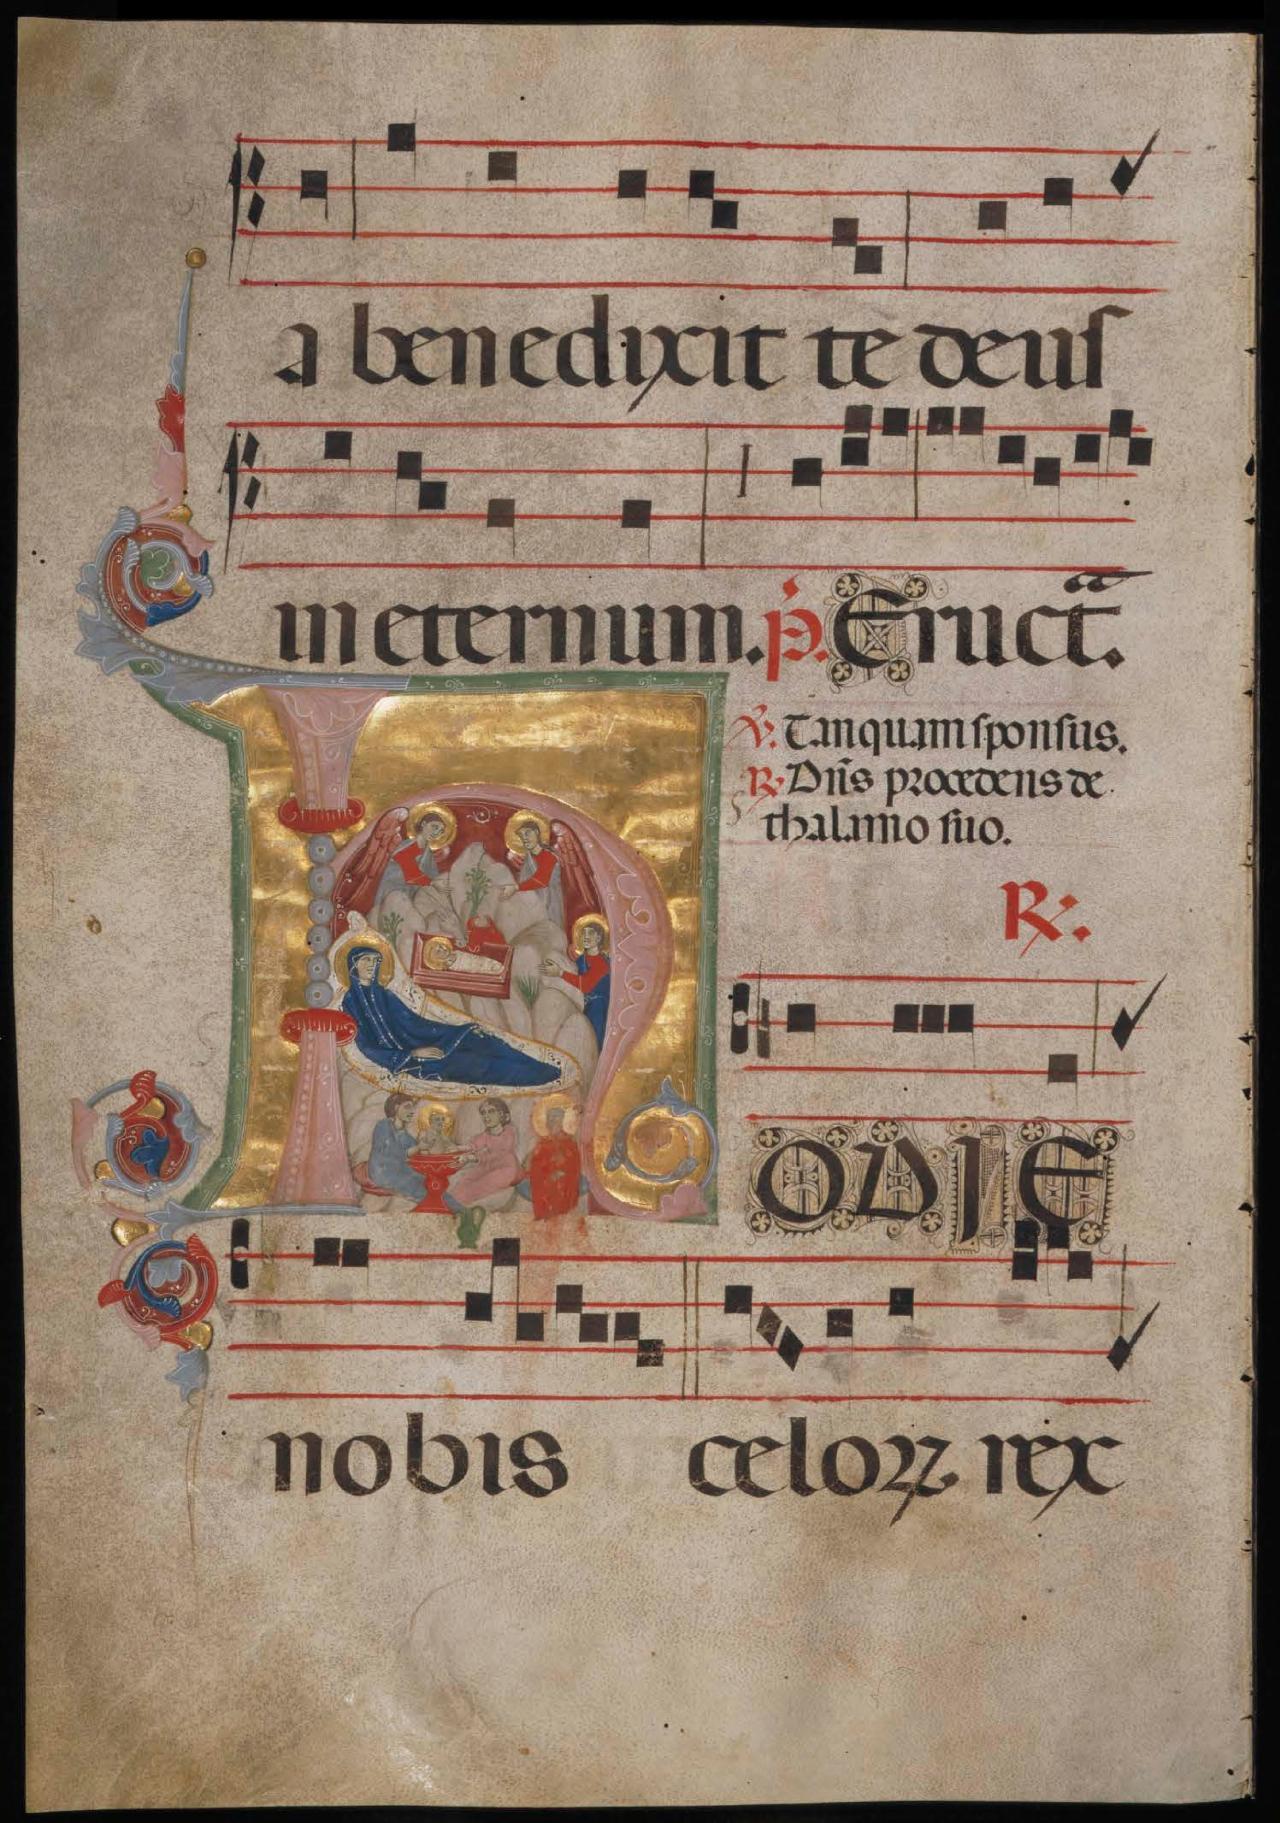 a benedixit te deus
in eternum. p̃. Eruct̃.
℣. Tanquam sponsus.
℟. Dñs procedens de
thalamo suo.
℟.
HODIE
nobis celoꝝ rex